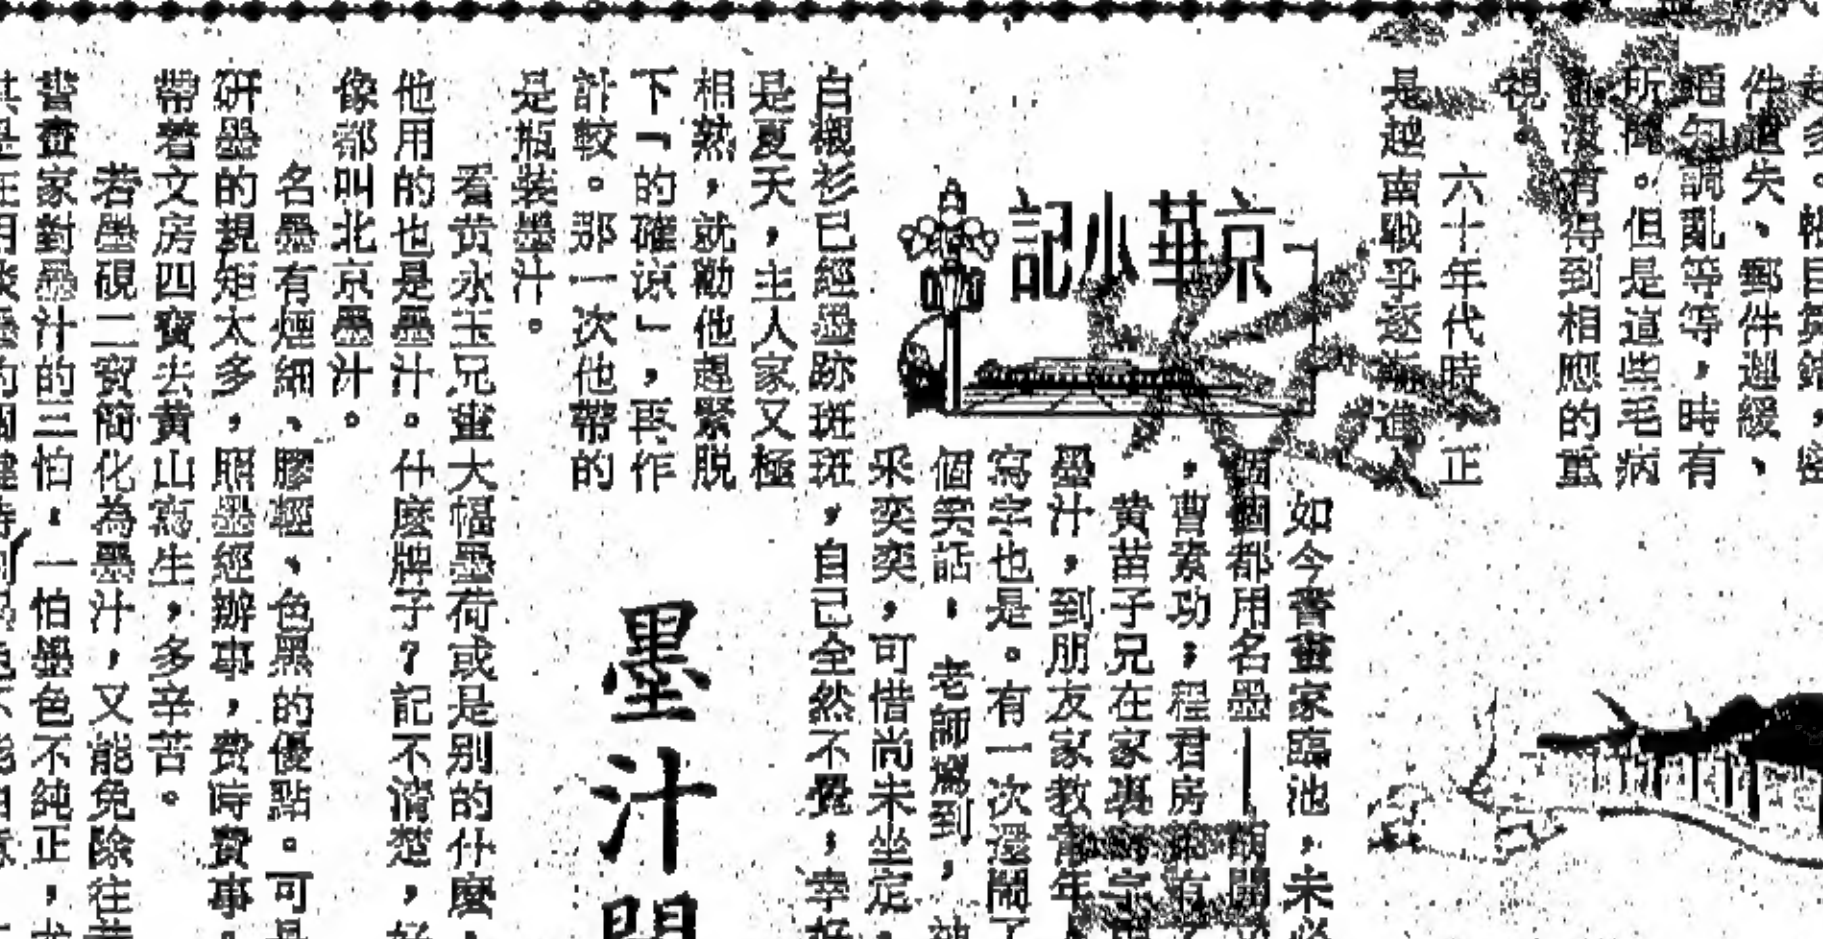 件遺失、郵件遲緩、
詞句調亂等等，時有
所聞。但是這些毛病
並沒有得到相應的重
視。
六十年代時，正
是越南戰爭逐
京華小記
如今書畫家臨池，未必
個個都用名墨——胡開
，曹素功；程君房
黄苗子兄在家裏寫字用
墨汁，到朋友家教青年
寫字也是。有一次還鬧了
個笑話，老師駕到，神
采奕奕，可惜尚未坐定，
自襯衫已經墨跡斑斑，自己全然不覺；幸好
是夏天，主人家又極
相熟，就勸他趕緊脱
下「的確凉」，再作
計較。那一次他帶的
是瓶裝墨汁。
墨汁
看黄永玉兄畫大幅墨荷或是别的什麽，
他用的也是墨汁。什麽牌子？記不清楚，好
像都叫北京墨汁。
名墨有煙細、膠輕、色黑的優點。可是
研墨的規矩太多，照墨經辦事，費時費事，
帶着文房四寶去黄山寫生，多辛苦。
若墨硯二寶簡化為墨汁，又能免除往
書畫家對墨汁的三怕，一怕墨色不純正，尤